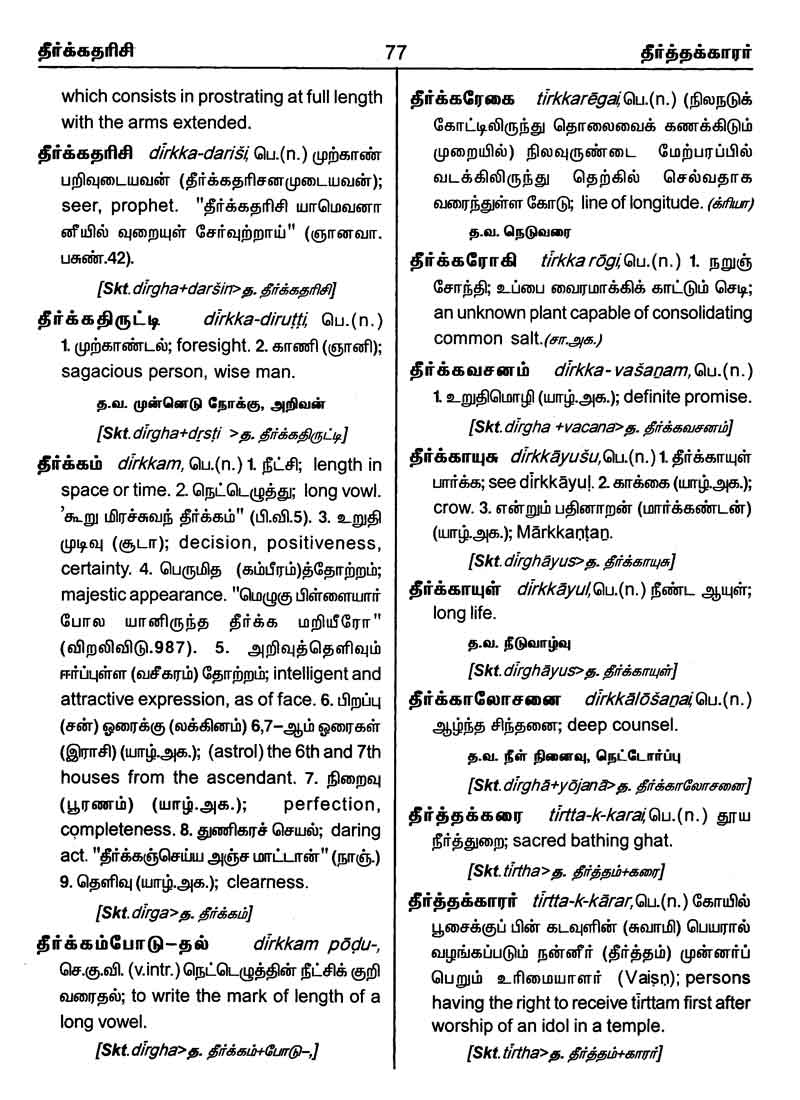 தீர்க்கதரிசி 77 தீர்த்தக்காரர்
which consists in prostrating at full length
with the arms extended.
தீர்க்கதரிசி dīrkka-dariši, பெ.(n.) முற்காண்
பறிவுடையவன் (தீர்க்கதரிசனமுடையவன்);
seer, prophet. "தீர்க்கதரிசி யாமெவனா
னீயில் வுறையுள் சேர்வுற்றாய்" (ஞானவா.
பசுண்.42).
[Skt. dīrgha+daršin>த. தீர்க்கதரிசி]
தீர்க்கதிருட்டி dīrkka-diruṭṭi, பெ.(n.)
1. முற்காண்டல்; foresight. 2. காணி (ஞானி);
sagacious person, wise man.
த.வ. முன்னெடு நோக்கு, அறிவன்
[Skt. dīrgha+dṛsṭi >த. தீர்க்கதிருட்டி]
தீர்க்கம் dīrkkam, பெ.(n.) 1. நீட்சி; length in
space or time. 2. நெட்டெழுத்து; long vowl.
'கூறு மிரச்சுவந் தீர்க்கம்" (பி.வி.5). 3. உறுதி
முடிவு (சூடா); decision, positiveness,
certainty. 4. பெருமித (கம்பீரம்)த்தோற்றம்;
majestic appearance. "மெழுகு பிள்ளையார்
போல யானிருந்த தீர்க்க மறியீரோ"
(விறலிவிடு.987). 5. அறிவுத்தெளிவும்
ஈர்ப்புள்ள (வசீகரம்) தோற்றம்; intelligent and
attractive expression, as of face. 6. பிறப்பு
(சன்) ஓரைக்கு (லக்கினம்) 6,7-ஆம் ஓரைகள்
(இராசி) (யாழ்.அக.); (astrol) the 6th and 7th
houses from the ascendant. 7. நிறைவு
(பூரணம்) (யாழ்.அக.); perfection,
completeness. 8. துணிகரச் செயல்; daring
act. "தீர்க்கஞ்செய்ய அஞ்ச மாட்டான்" (நாஞ்.)
9. தெளிவு (யாழ்.அக.); clearness.
[Skt. dīrga>த. தீர்க்கம்]
தீர்க்கம்போடு-தல் dīrkkam pōḍu-,
செ.கு.வி. (v.intr.) நெட்டெழுத்தின் நீட்சிக் குறி
வரைதல்; to write the mark of length of a
long vowel.
[Skt. dīrgha>த. தீர்க்கம்+போடு-,]
தீர்க்கரேகை tīrkkarēgai, பெ.(n.) (நிலநடுக்
கோட்டிலிருந்து தொலைவைக் கணக்கிடும்
முறையில்) நிலவுருண்டை மேற்பரப்பில்
வடக்கிலிருந்து தெற்கில் செல்வதாக
வரைந்துள்ள கோடு; line of longitude. (க்ரியா)
த.வ. நெடுவரை
தீர்க்கரோகி tīrkka rōgi, பெ.(n.) 1. நறுஞ்
சோந்தி; உப்பை வைரமாக்கிக் காட்டும் செடி;
an unknown plant capable of consolidating
common salt.(சா.அக.)
தீர்க்கவசனம் dīrkka-vašaṉam, பெ.(n.)
1. உறுதிமொழி (யாழ்.அக.); definite promise.
[Skt. dīrgha +vacana>த. தீர்க்கவசனம்]
தீர்க்காயுசு dīrkkāyušu, பெ.(n.) 1. தீர்க்காயுள்
பார்க்க; see dīrkkāyuḷ. 2. காக்கை (யாழ்.அக.);
crow. 3. என்றும் பதினாறன் (மார்க்கண்டன்)
(யாழ்.அக.); Mārkkaṇṭaṉ.
[Skt. dīrghāyus>த. தீர்க்காயுசு]
தீர்க்காயுள் dīrkkāyul, பெ.(n.) நீண்ட ஆயுள்;
long life.
த.வ. நீடுவாழ்வு
[Skt. dīrghāyus>த. தீர்க்காயுள்]
தீர்க்காலோசனை dīrkkālōšaṉai, பெ.(n.)
ஆழ்ந்த சிந்தனை; deep counsel.
த.வ. நீள் நினைவு, நெட்டோர்ப்பு
[Skt. dīrghā+yōjanā>த. தீர்க்காலோசனை]
தீர்த்தக்கரை tīrtta-k-karai, பெ.(n.) தூய
நீர்த்துறை; sacred bathing ghat.
[Skt. tīrtha>த. தீர்த்தம்+கரை]
தீர்த்தக்காரர் tīrtta-k-kārar, பெ.(n.) கோயில்
பூசைக்குப் பின் கடவுளின் (சுவாமி) பெயரால்
வழங்கப்படும் நன்னீர் (தீர்த்தம்) முன்னர்ப்
பெறும் உரிமையாளர் (Vaisṇ); persons
having the right to receive tīrttam first after
worship of an idol in a temple.
[Skt. tīrtha>த. தீர்த்தம்+காரர்]